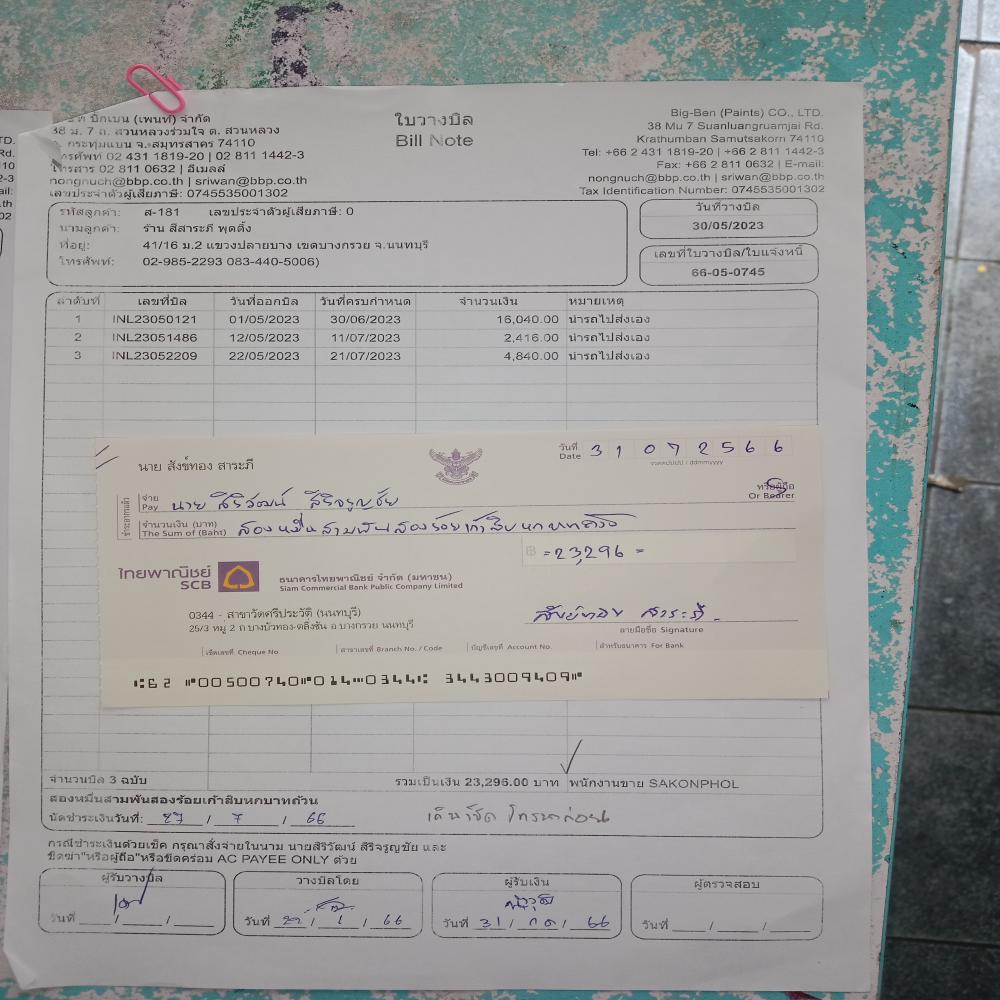 บิกเบน (เพนท์) จำกัด
38 ม. 7 ถ. สวนหลวงร่วมใจ ต. สวนหลวง
กระทุ่มแบน จ. สมุทรสาคร 74110
โทรศัพท์ 02 431 1819-20 | 02 811 1442-3
โทรสาร 02 811 0632 | อีเมลล์
nongnuch@bbp.co.th | sriwan@bbp.co.th
เลขประจำตัวผู้เสียภาษี: 0745535001302
ใบวางบิล
Bill Note
Big-Ben (Paints) CO., LTD.
38 Mu 7 Suanluangruamjai Rd.
Krathumban Samutsakorn 74110
Tel: +66 2 431 1819-20 | +66 2 811 1442-3
Fax: +66 2 811 0632 | E-mail:
nongnuch@bbp.co.th | sriwan@bbp.co.th
Tax Identification Number: 0745535001302
รหัสลูกค้า: ส-181 เลขประจำตัวผู้เสียภาษี: 0
นามลูกค้า: ร้าน สีสาระภี พุตติ้ง
ที่อยู่: 41/16 ม.2 แขวงปลายบาง เขตบางกรวย จ.นนทบุรี
โทรศัพท์: 02-985-2293 083-440-5006)
วันที่วางบิล
30/05/2023
เลขที่ใบวางบิล/ใบแจ้งหนี้
66-05-0745
ลำดับที่ เลขที่บิล วันที่ออกบิล วันที่ครบกำหนด จำนวนเงิน หมายเหตุ
1 INL23050121 01/05/2023 30/06/2023 16,040.00 นำรถไปส่งเอง
2 INL23051486 12/05/2023 11/07/2023 2,416.00 นำรถไปส่งเอง
3 INL23052209 22/05/2023 21/07/2023 4,840.00 นำรถไปส่งเอง
นาย สังข์ทอง สาระภี
วันที่ Date 31072566
วววดดปปปป / ddmmyyyy
จ่าย Pay นาย สิริวัฒน์ สิริจรูญชัย
หรือผู้ถือ
Or Bearer
จำนวนเงิน (บาท)
The Sum of (Baht) สองหมื่นสามพันสองร้อยเก้าสิบหกบาทถ้วน
฿ =23,296=
ไทยพาณิชย์
SCB
ธนาคารไทยพาณิชย์ จำกัด (มหาชน)
Siam Commercial Bank Public Company Limited
0344 - สาขาวัดศรีประวัติ (นนทบุรี)
25/3 หมู่ 2 ถ.บางบัวทอง-ตลิ่งชัน อ.บางกรวย นนทบุรี
สังข์ทอง สาระภี
ลายมือชื่อ Signature
เช็คเลขที่ Cheque No. สาขาเลขที่ Branch No. / Code บัญชีเลขที่ Account No. สำหรับธนาคาร For Bank
⑆62 ⑈00500740⑈014⑉0344⑆ 3443009409⑈
จำนวนบิล 3 ฉบับ รวมเป็นเงิน 23,296.00 บาท พนักงานขาย SAKONPHOL
สองหมื่นสามพันสองร้อยเก้าสิบหกบาทถ้วน
นัดชำระเงินวันที่: 27 / 7 / 66
กรณีชำระเงินด้วยเช็ค กรุณาสั่งจ่ายในนาม นายสิริวัฒน์ สิริจรูญชัย และ
ขีดฆ่า"หรือผู้ถือ"หรือขีดคร่อม AC PAYEE ONLY ด้วย
ผู้รับวางบิล วางบิลโดย ผู้รับเงิน ผู้ตรวจสอบ
วันที่ / / วันที่ / / 66 วันที่ 31 / กค / 66 วันที่ / /